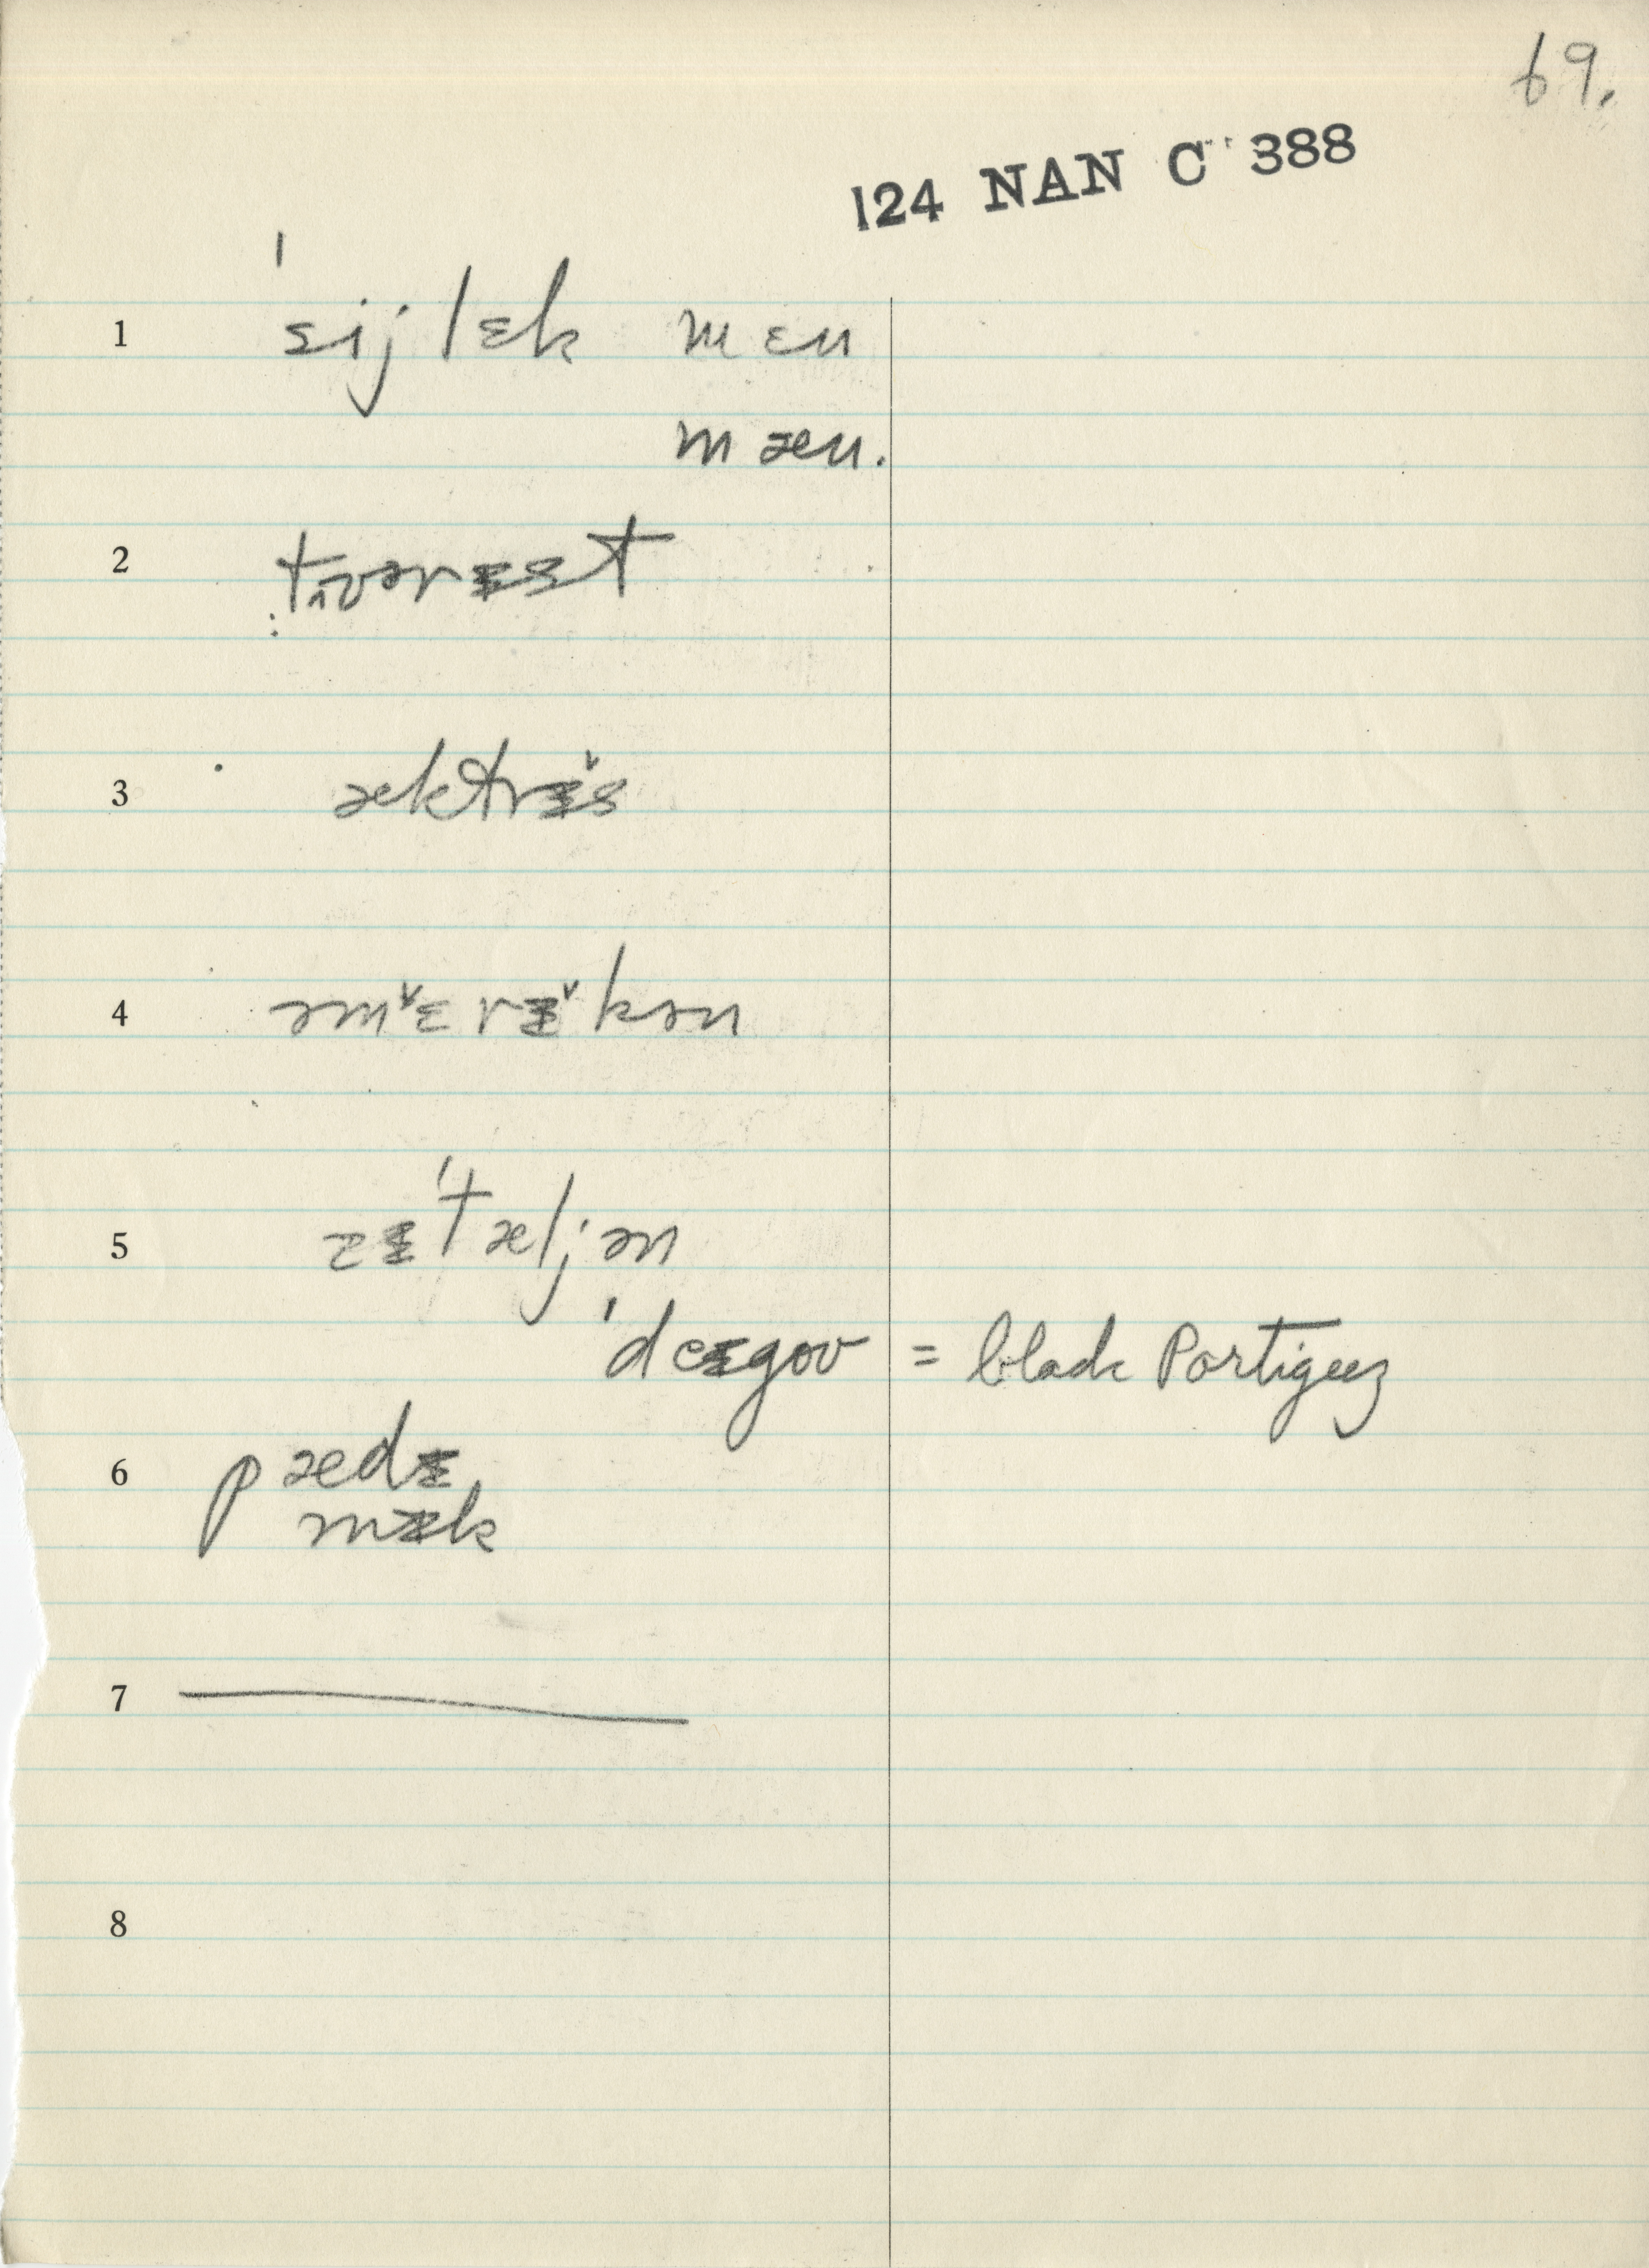 69.
124 NAN C 388
1 ˈsɪjlɛk mɛn
mæn.
2 tʌvərɪst
3 æktrɪ˅s
4 əm˅ɛrɪ˅kən
5 ɪˈtæljən
ˈdeɪgoʊ = black Portigeez
6 pædɪ
mɪk
7
8